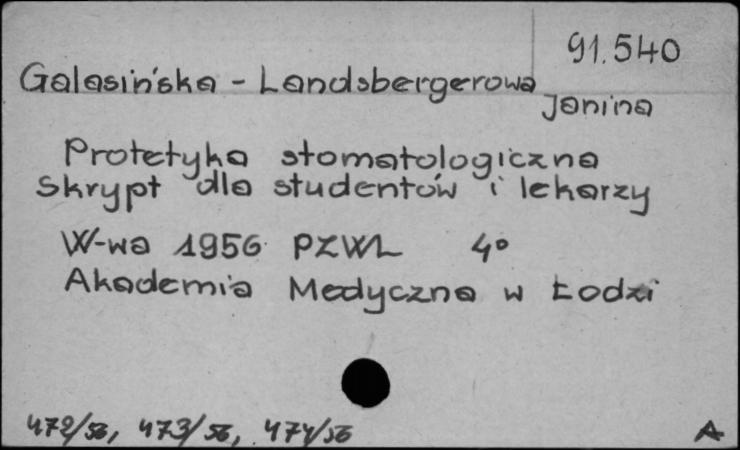 91.540
Galasińska - Landsbergerowa
Janina
Protetyka stomatologiczna
Skrypt dla studentów i lekarzy
W-wa 1956 PZWL 4°
Akademia Medyczna w Łodzi
472/56, 473/56, 474/56
A